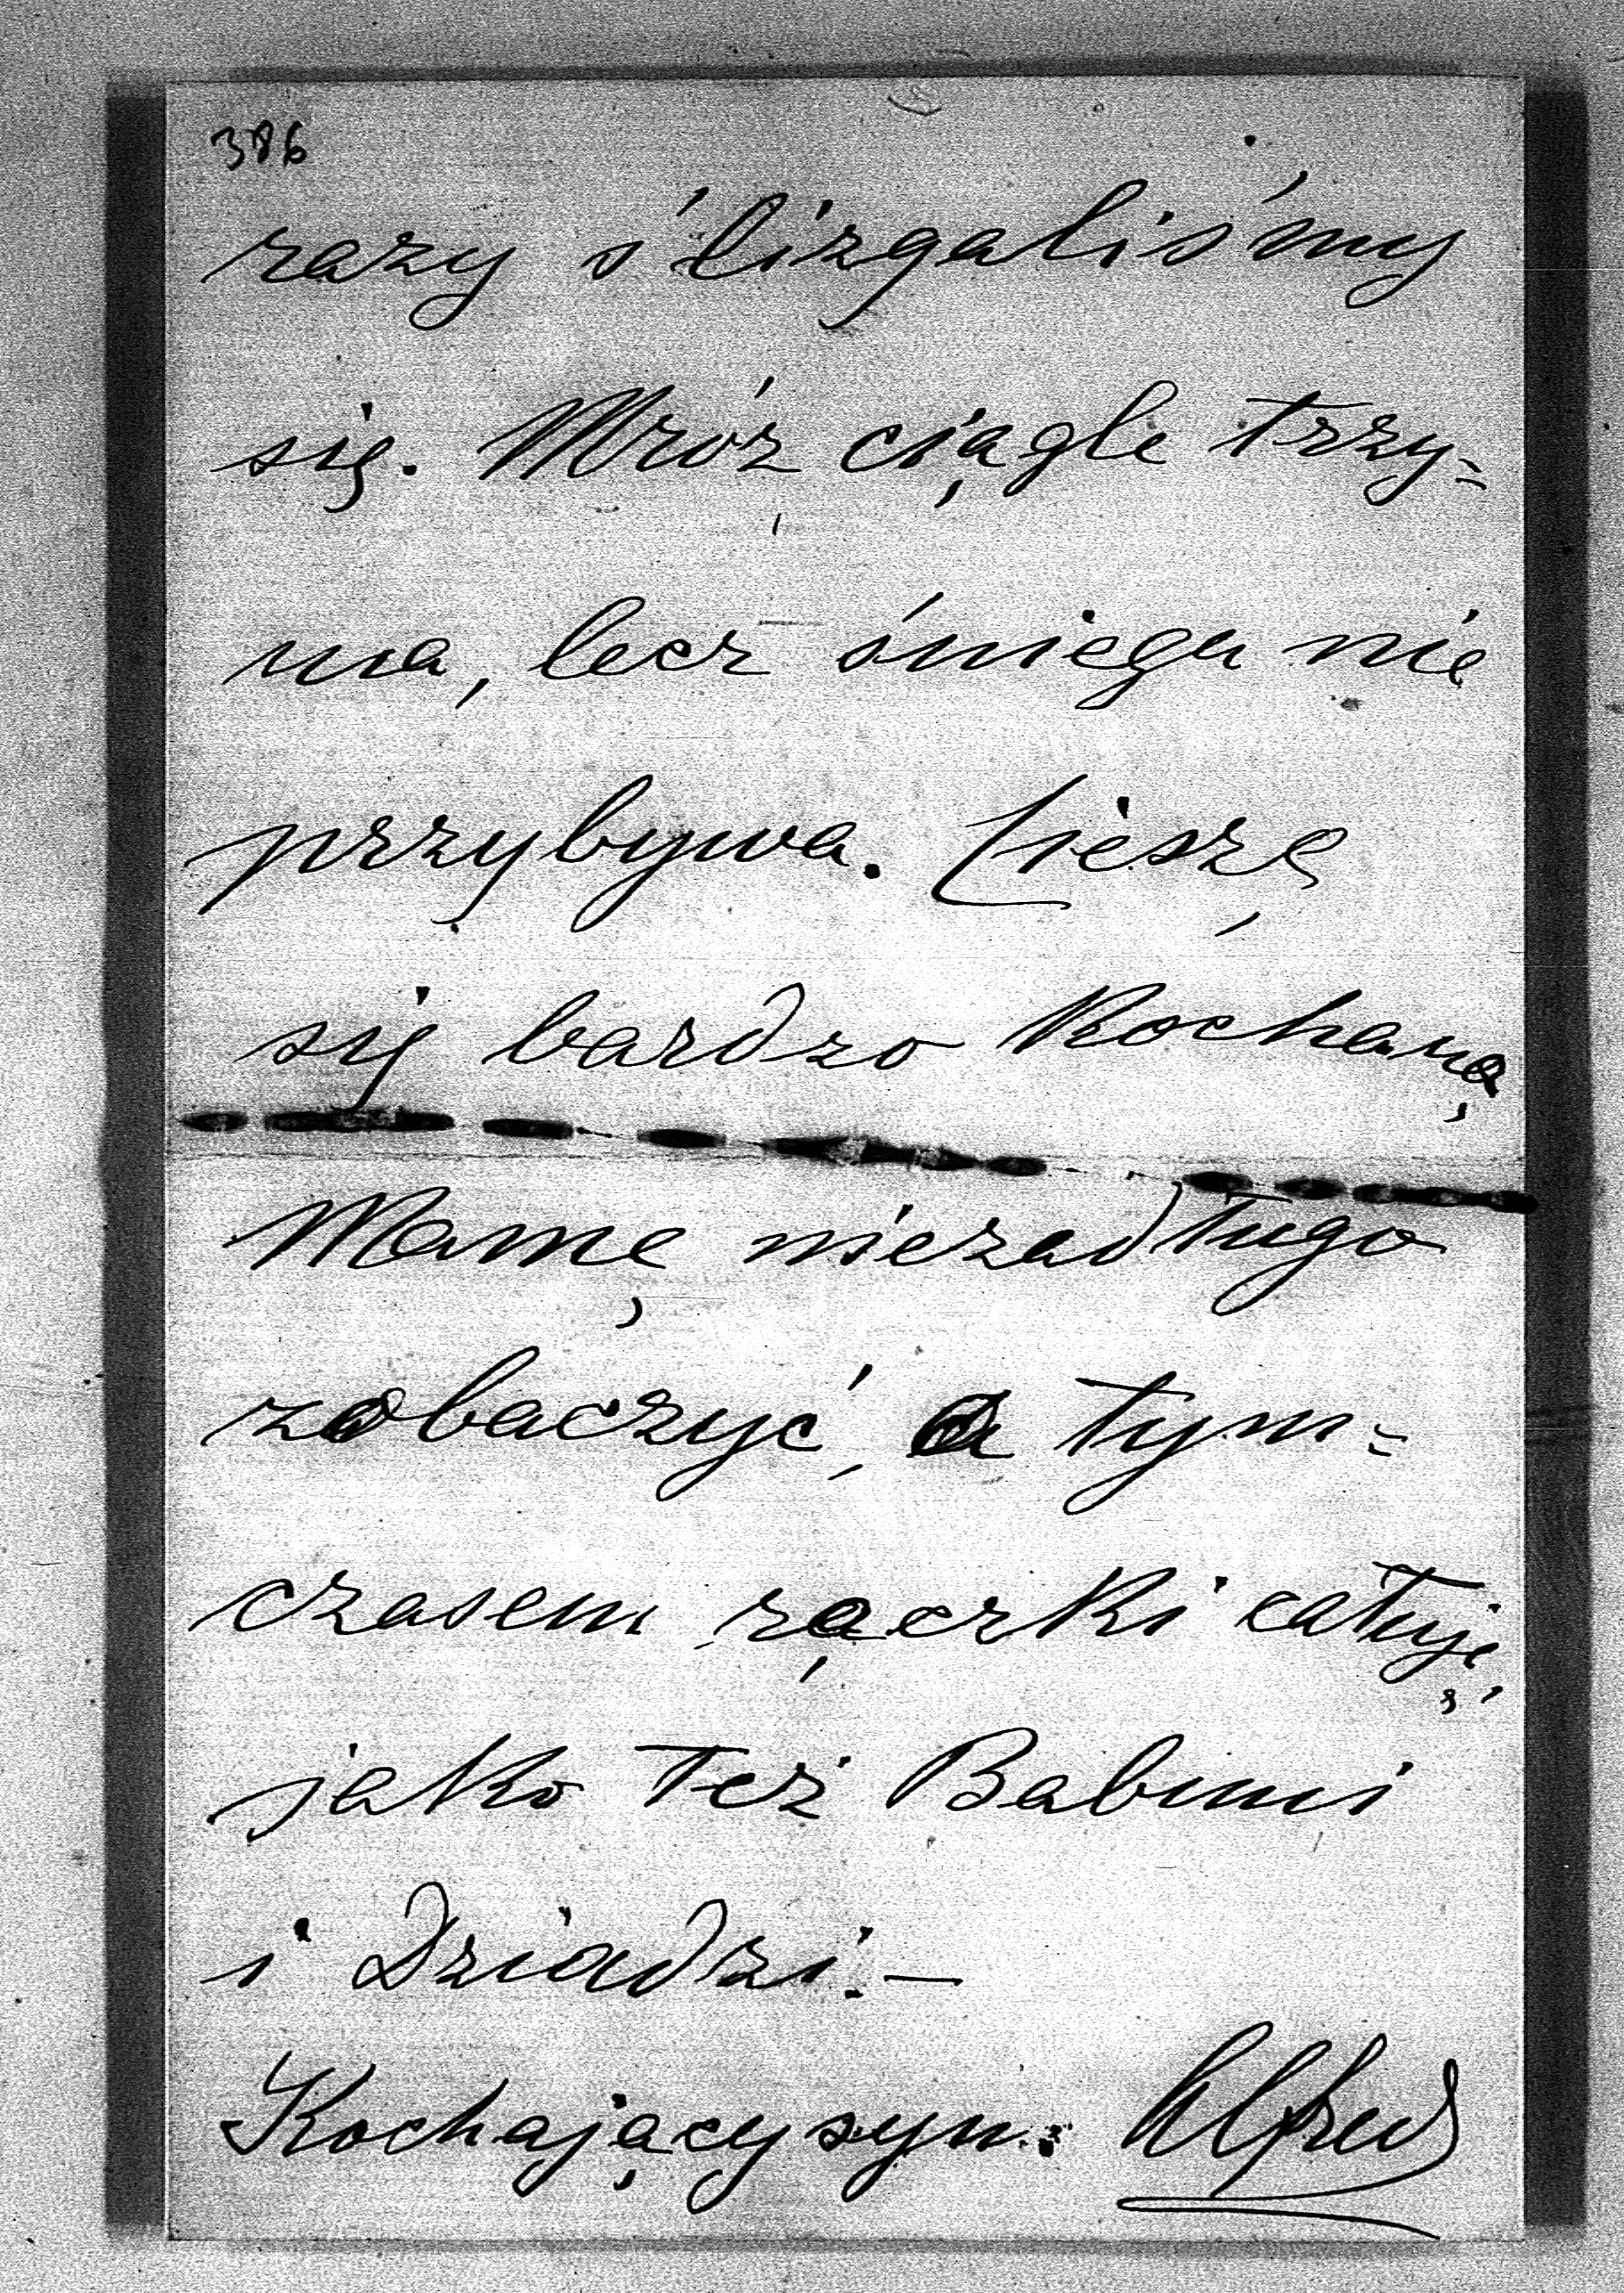 386
razy ślizgaliśmy
się. Mróz ciągle trzy=
ma, lecz śniegu nie
przybywa. Cieszę
się bardzo Kochaną
Mamę niezadługo
zobaczyć, a tym=
czasem rączki całuję,
jako też Babuni
i Dziadzi. —
Kochający syn. Alfred